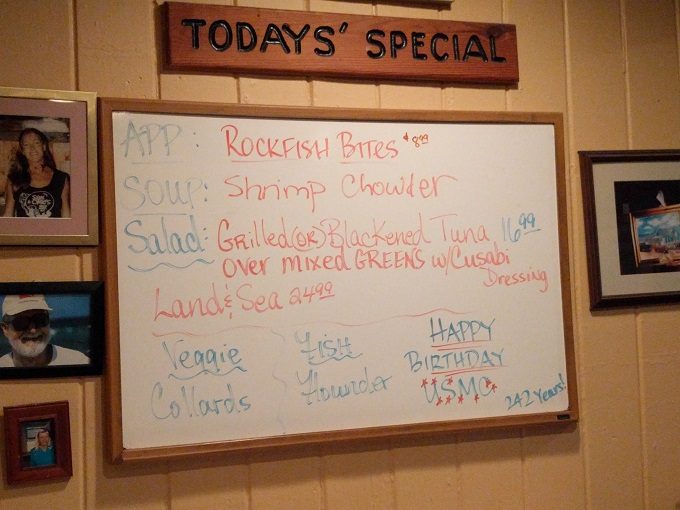 TODAYS' SPECIAL
APP: ROCKFISH BITES $8.99
SOUP: Shrimp Chowder
Salad: Grilled (OR) Blackened Tuna 16.99
over mixed GREENS w/Cusabi
Dressing
Land & Sea 24.99
Veggie
Collards
FISH
Flounder
HAPPY
BIRTHDAY
USMC
242 Years!